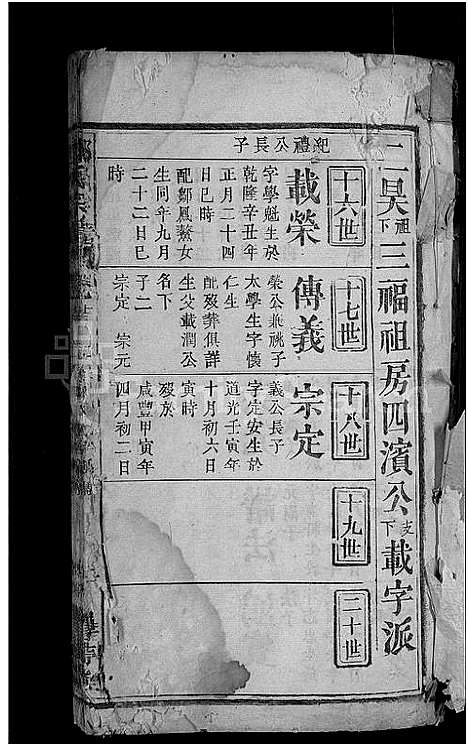 二昊祖下三福祖房四濱公支下載字派
十六世
紀禮公長子
載榮
字學魁生於
乾隆辛丑年
正月二十四
日巳時
配鄒鳳鰲女
生同年九月
二十二日巳
時
十七世
傳義
榮公兼祧子
太學生字懷
仁生
配歿葬俱詳
生父載潤公
名下
子二
宗定 宗元
十八世
宗定
義公長子
字定安生於
道光壬寅年
十月初六日
寅時
歿於
咸豐甲寅年
四月初二日
十九世
二十世